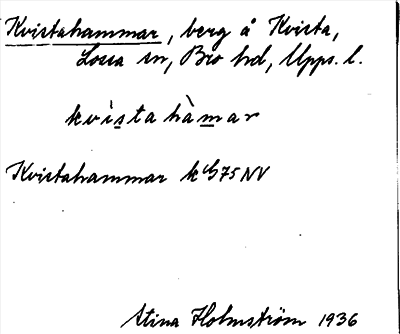 Kvistahammar, berg å Kvista,
Lossa sn, Bro hd, Upps. l.
kvìstahàmar
Kvistahammar k 75 NV
Stina Holmström 1936